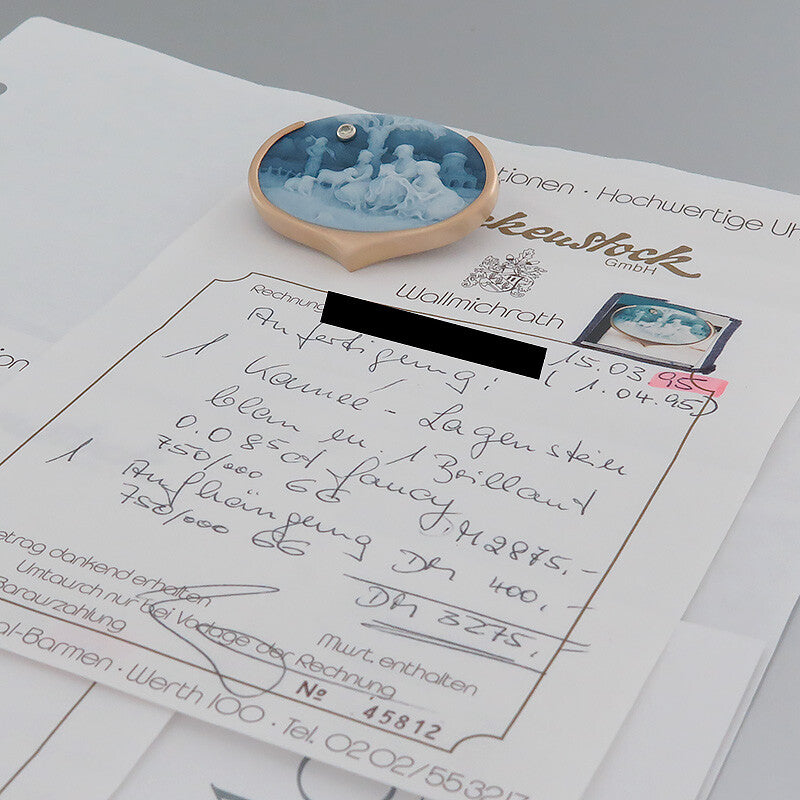 tionen · Hochwertige Uh
ckenstock
GmbH
Wallmichrath
Rechnung
Anfertigung: 15.03.95
( 1.04.95)
1 Kamée - Lagenstein
blau m. 1 Brillant
0.085ct fancy
750/000 GG DM 2875.-
1 Aufhängung
750/000 GG DM 400.-
DM 3275.-
etrag dankend erhalten
Umtausch nur bei Vorlage der Rechnung
Barauszahlung
Mwst. enthalten
No 45812
al-Barmen · Werth 100 · Tel. 0202/553217